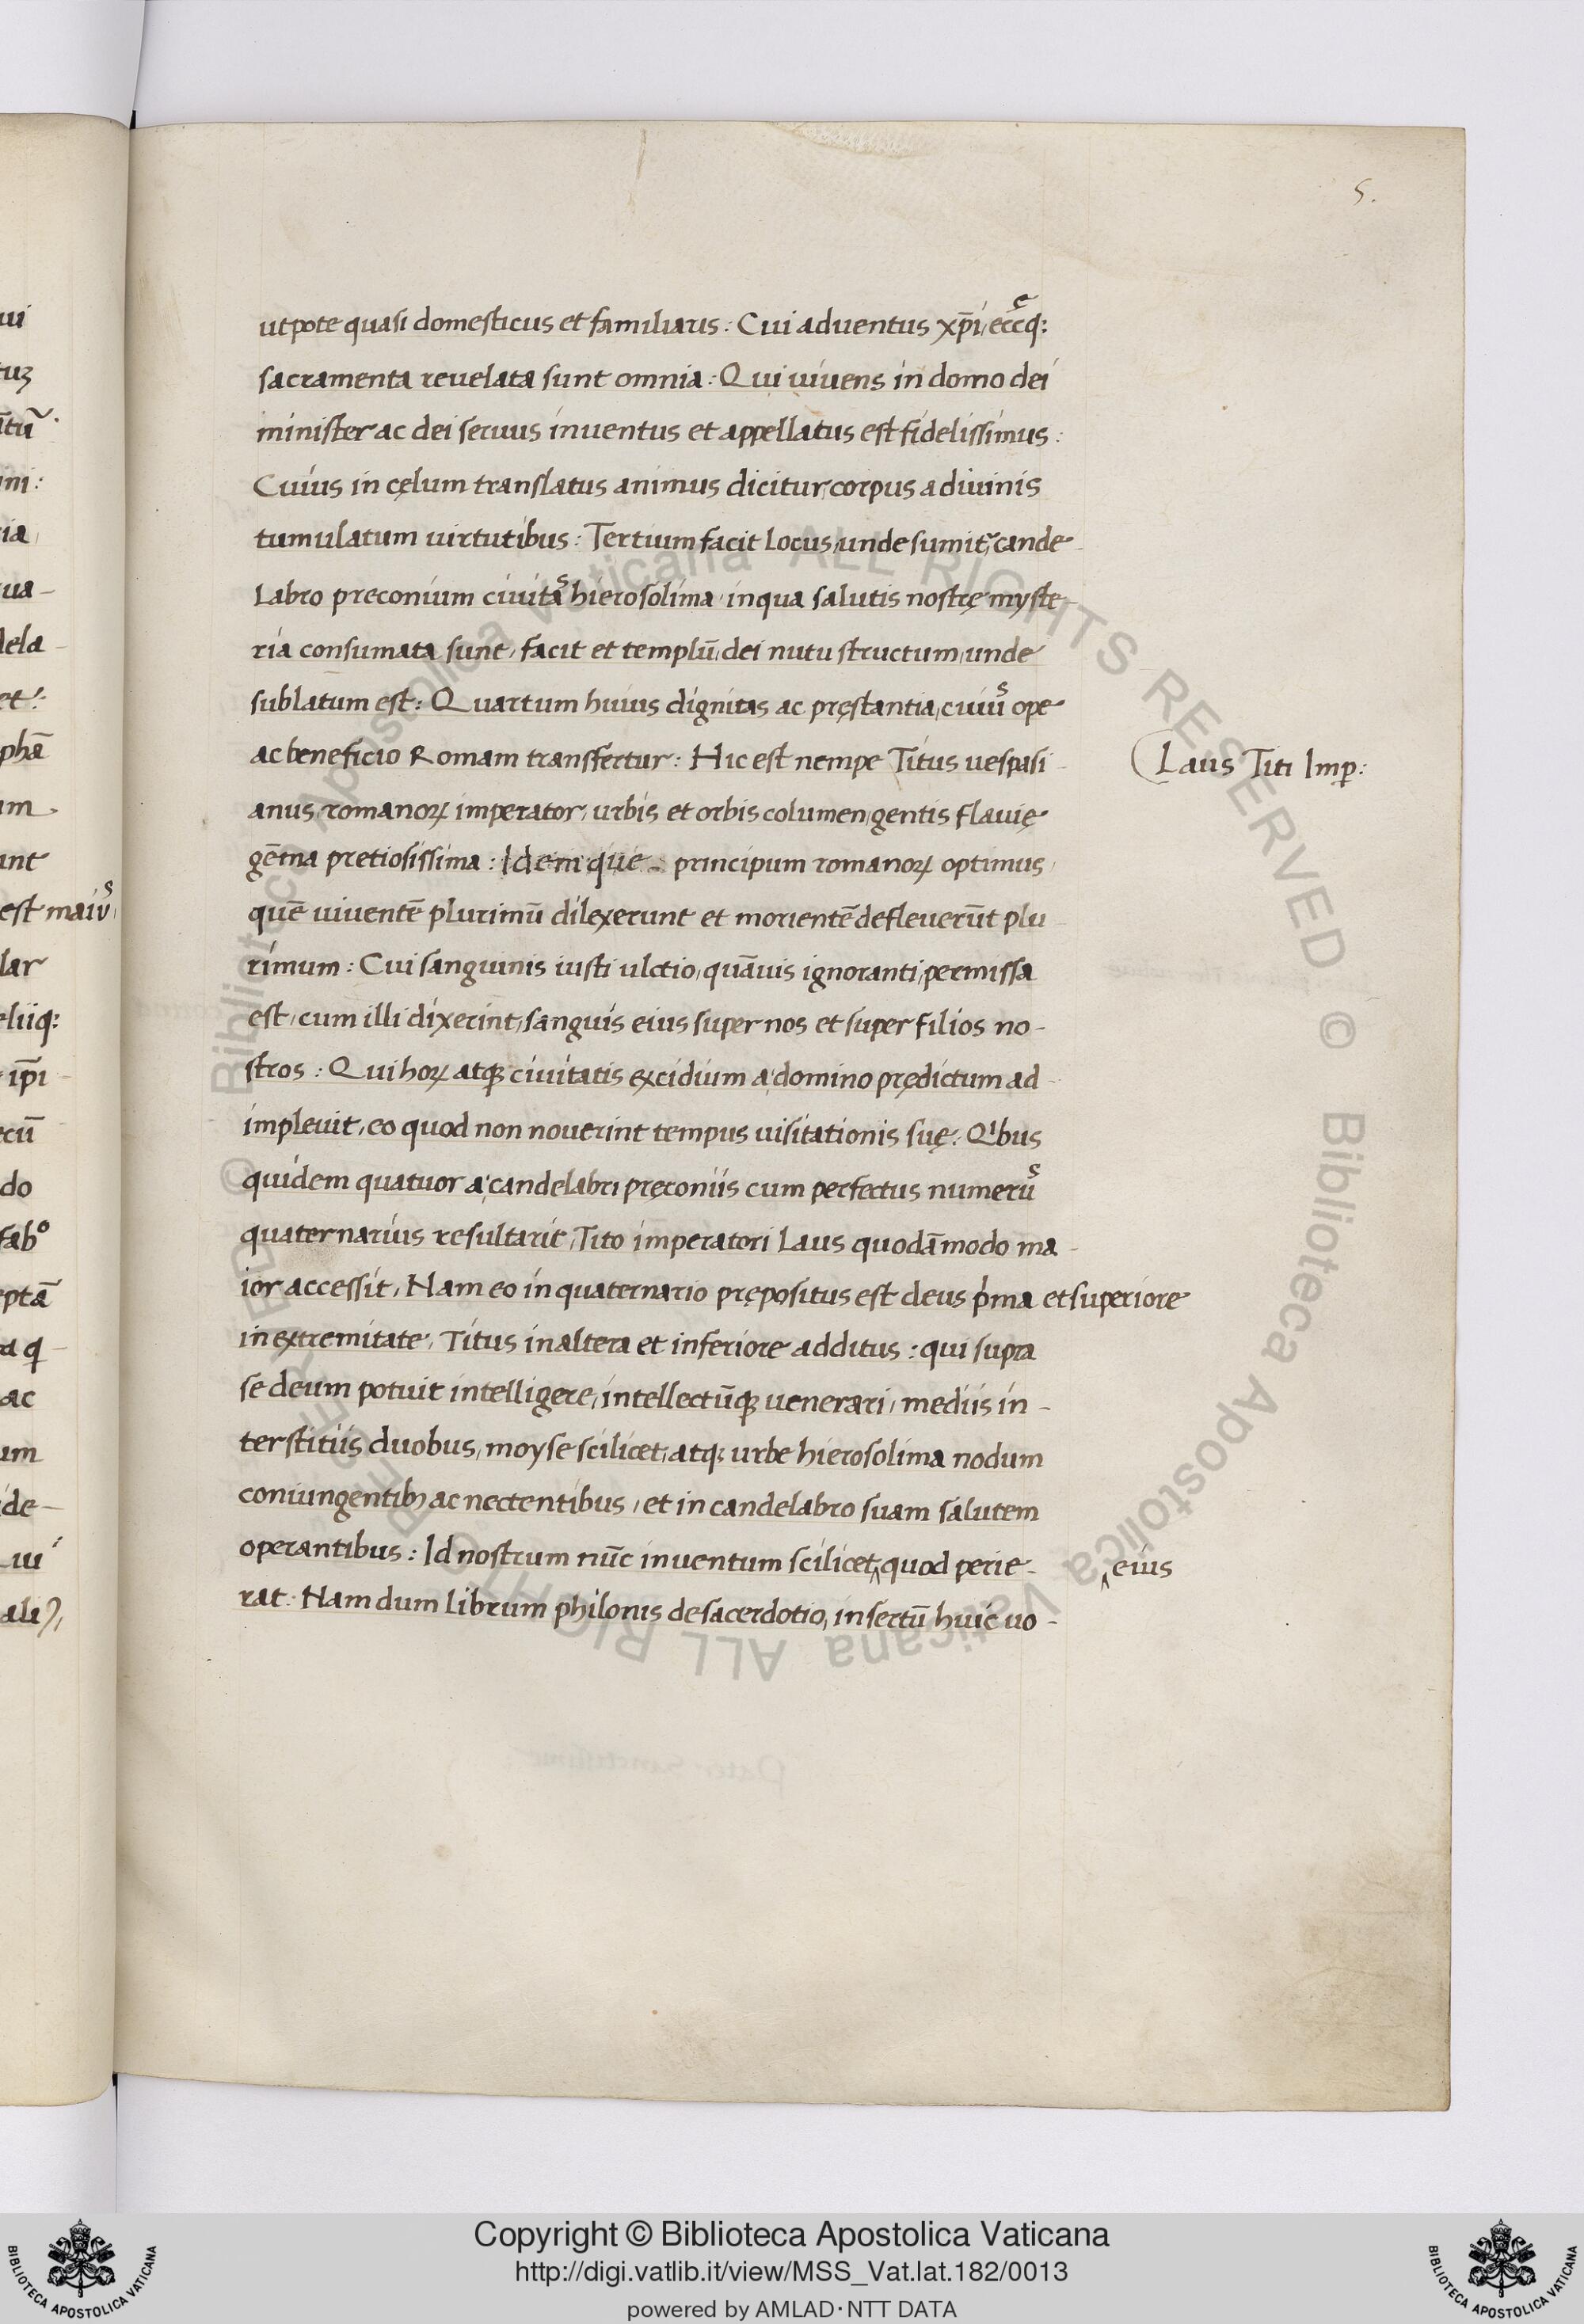 5.
utpote quasi domesticus et familiaris: Cui aduentus xp̄i, eccę̄q:
sacramenta reuelata sunt omnia: Qui uiuens in domo dei
minister ac dei seruus inuentus et appellatus est fidelissimus:
Cuius in cęlum translatus animus dicitur, corpus a diuinis
tumulatum uirtutibus: Tertium facit locus, unde sumit᷑, cande
labro preconium ciuitas hierosolima, in qua salutis nostrę myste-
ria consumata sunt, facit et templū, dei nutu structum, unde
sublatum est: Quartum huius dignitas ac pręstantia, cuius ope
ac beneficio Romam transfertur: Hic est nempe Titus uespasi-
Laus Titi Imp:
anus, romanoꝝ imperator, urbis et orbis columen, gentis flauię
gēma pretiosissima: Idemque- principum romanoꝝ optimus,
quē uiuentē plurimū dilexerunt et morientē defleuerūt plu
rimum: Cui sanguinis iusti ulctio, quāuis ignoranti, permissa
est, cum illi dixerint, sanguis eius super nos et super filios no-
stros: Qui hoꝝ atqꝫ ciuitatis excidium a domino prędictum ad-
impleuit, eo quod non nouerint tempus uisitationis suę: Qⁱbus
quidem quatuor a candelabri pręconiis cum perfectus numerus
quaternarius resultarit, Tito imperatori laus quodāmodo ma-
ior accessit, Nam eo in quaternario prępositus est deus pⁱma et superiore
in extremitate, Titus in altera et inferiore additus: qui supra
se deum potuit intelligere, intellectūqꝫ uenerari, mediis in-
terstitiis duobus, moyse scilicet, atqꝫ urbe hierosolima nodum
coniungentibꝫ ac nectentibus, et in candelabro suam salutem
operantibus: Id nostrum nūc inuentum scilicet‸ quod perie-
‸eius
rat. Nam dum librum philonis de sacerdotio, insertū huic uo-
Copyright © Biblioteca Apostolica Vaticana
http://digi.vatlib.it/view/MSS_Vat.lat.182/0013
powered by AMLAD·NTT DATA